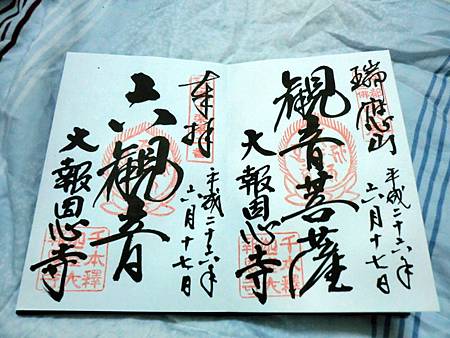 瑞應山
平成二十六年
六月十七日
観音菩薩
大報恩寺
奉拝
平成二十六年
六月十七日
六観音
大報恩寺
千本釋
千本釋